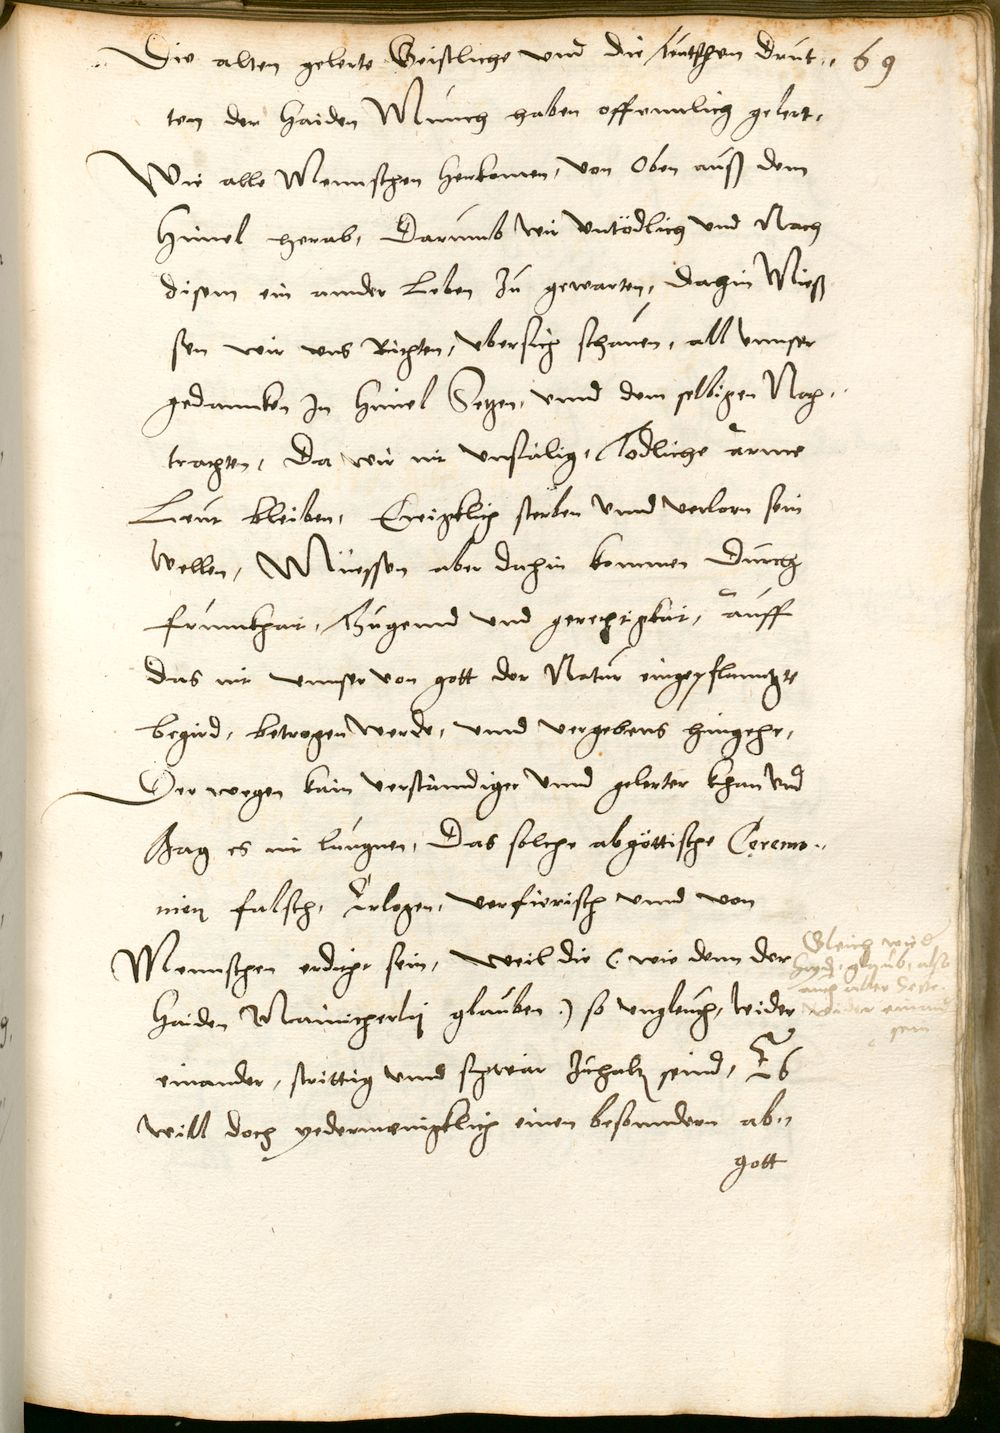 Die alten gelerte Geistliche vnd die teutschen Drut= 69
ten der Haiden Münch haben offenntlich gelert,
Wie alle Mennschen herkomen, von Oben auß dem
Himel herab, Darumb wir vntödlich vnd Nach
disem ein annder Leben zu gewarten, dahin Mieß
sen wir vns Richten, vbersich schauen, all vnnser
gedanncken In Himel Setzen, vnnd dem selbigen Nach=
trachten, Da wir nit vnsälig, Todliche arme
Leut bleiben, Ewigklich sterben vnnd verlorn sein
wellen, Müessen aber dahin kommen Durch
frumkhait, Thugennd vnd gerechtigkait, auff
das nit vnnser von gott der Natur eingepflanntzte
begird, betrogen werde, vnnd vergebens hingehe,
Der wegen kain verständiger vnnd gelerter khan vnd
Mag es nit laugnen, Das solche abgöttische Ceremo=
nien falsch, Erlogen, verfierisch vnnd von
Mennschen erdicht sein, weil die (wie denn der
Haiden Mainicherley glauben) so vngleich, wider
einander, strittig vnnd schwär Zuhalten seind, Es
will doch yedermenigklich einen besonndern ab=
gott
Gleich wie d
Hayd. glaub, also
auch aller Secte.
wider einand
sein